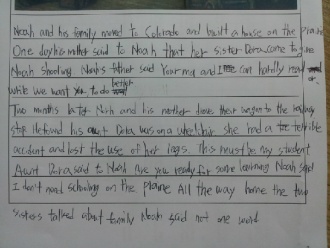 Noah and his family moved to Colorado and built a house on the prairie
One day his mother said to Noah that her sister Dora come to give
Noah shooling Noah's father said Your ma and I can hatdly read or
while we want you to do better
Two months later Noah and his mother drove their wagon to the
stop He found his aunt Dora was on a wheelchair she had a terrible
accident and lost the use of her legs. This must be my student
Aunt Dora said to Noah Are you ready for some learning Noah said
I don't need schooling on the prairie All the way home the two
sisters talked about family Noah said not one word